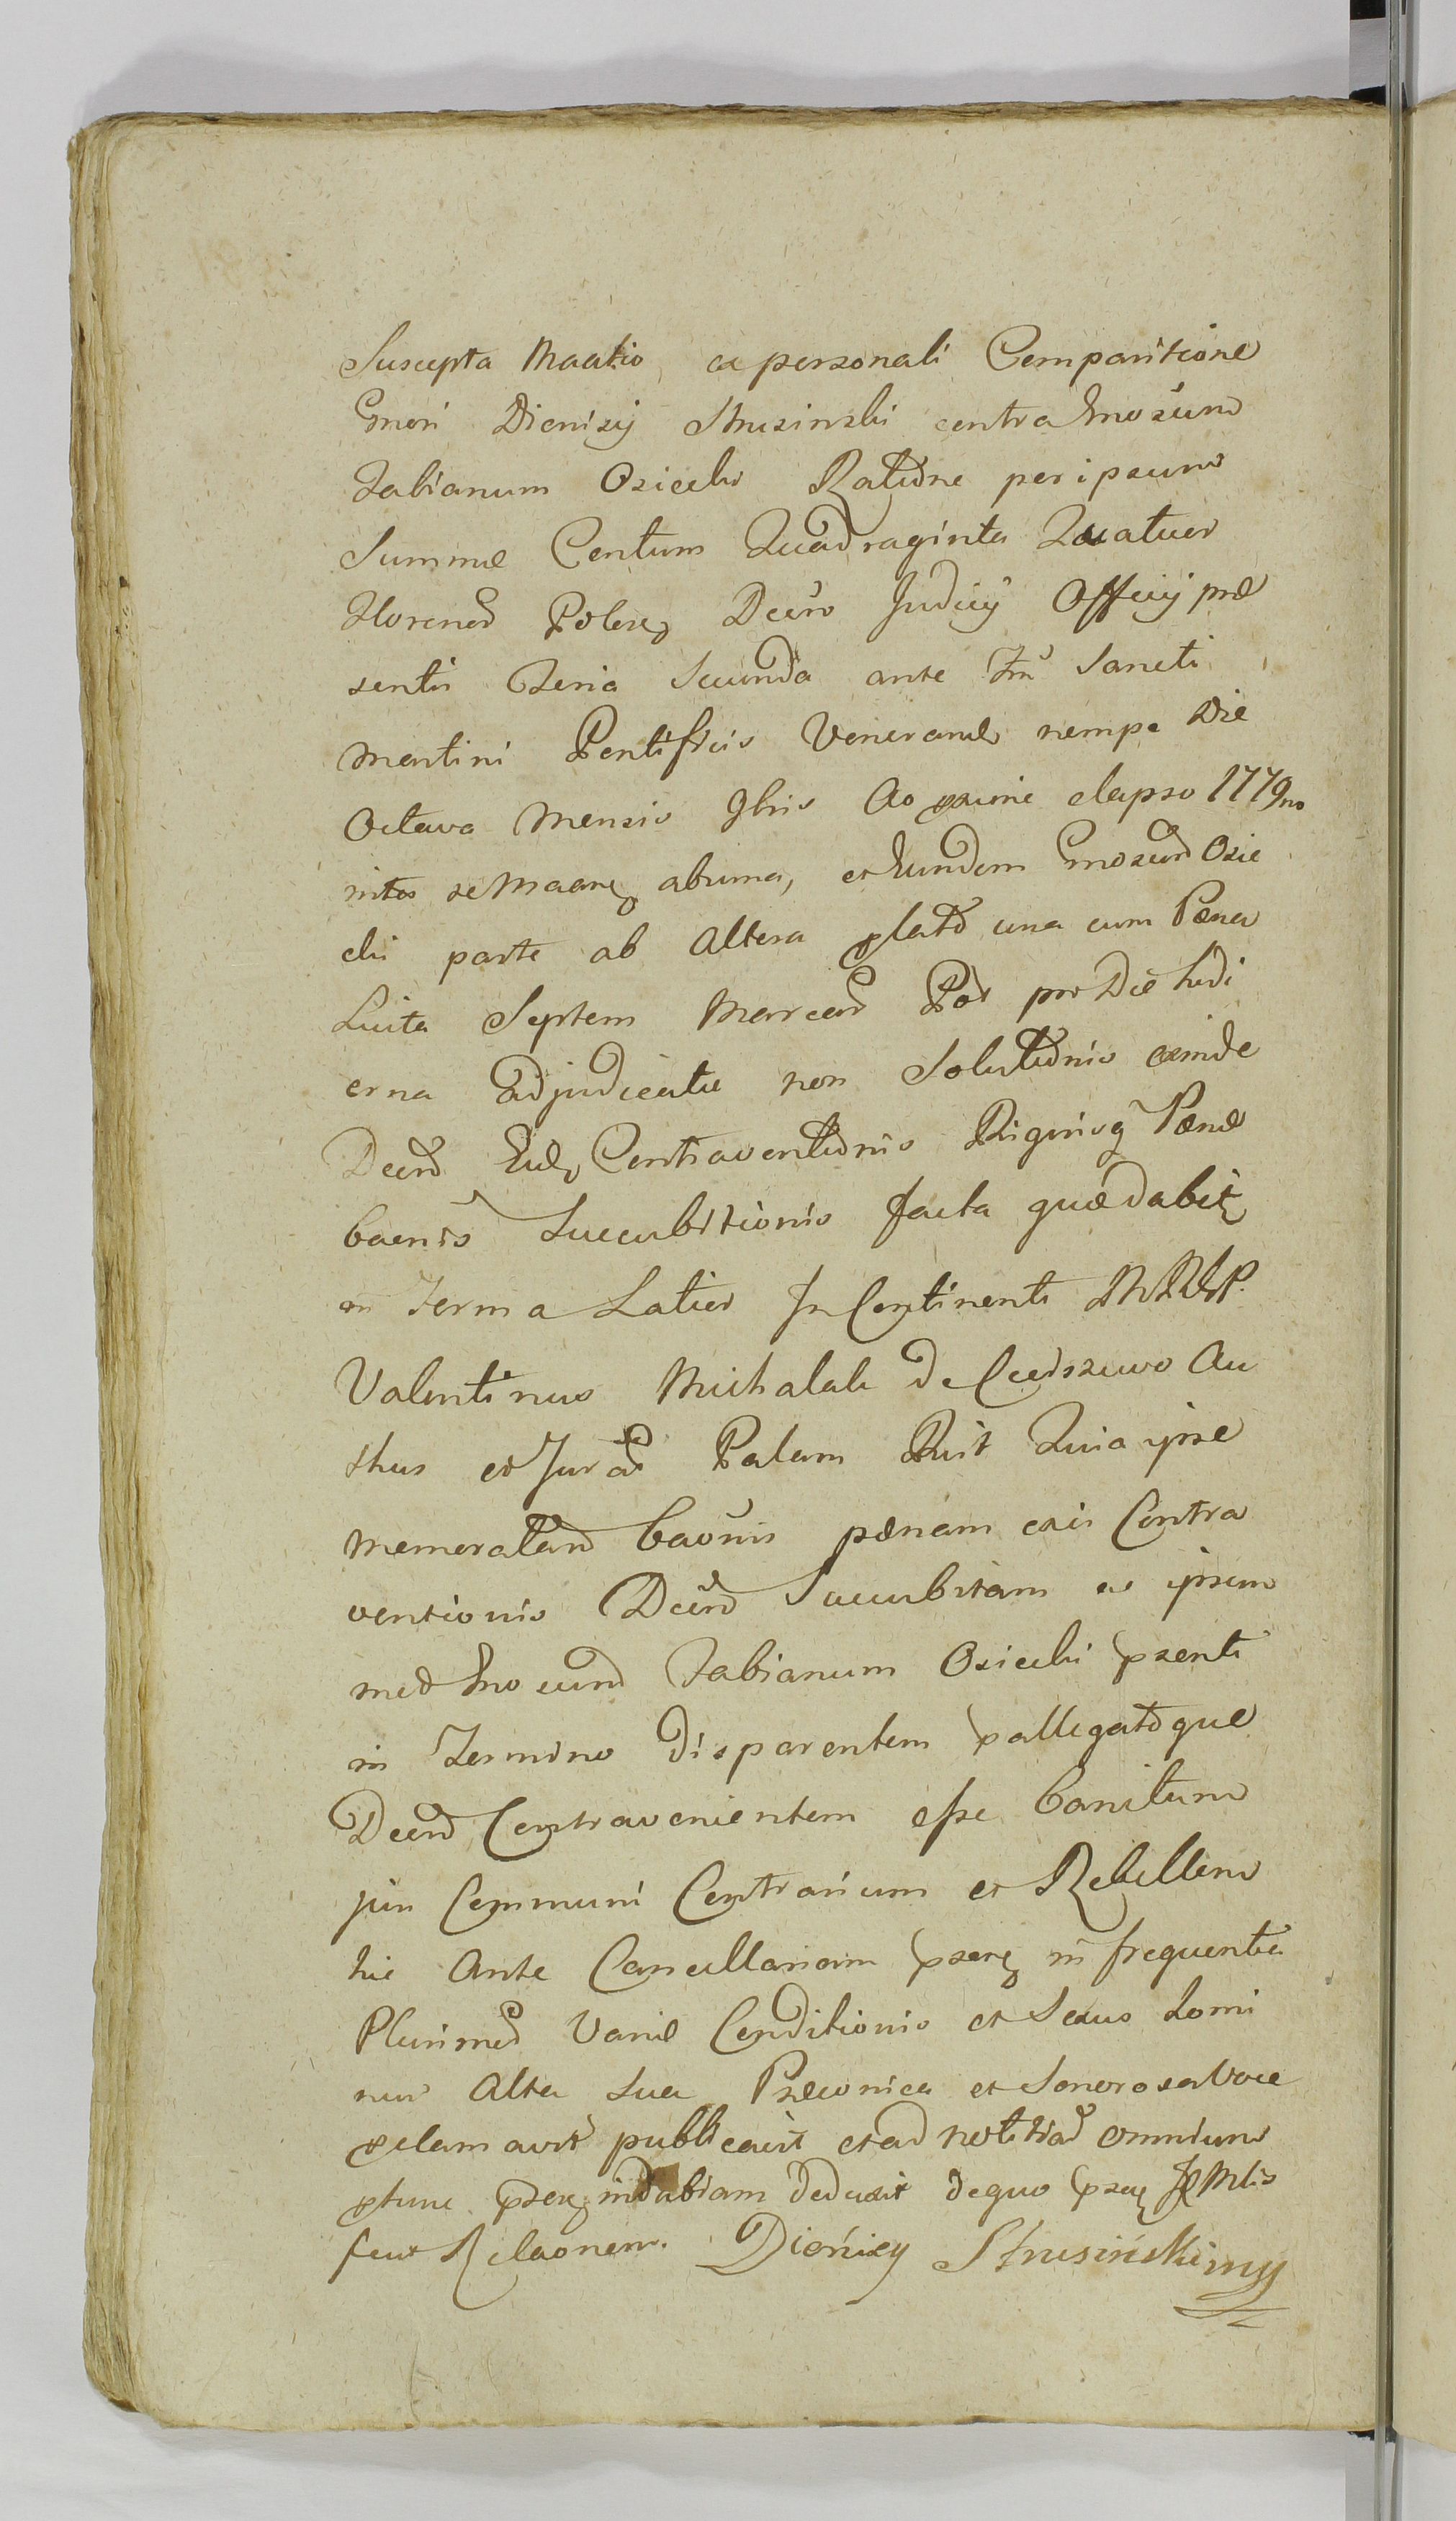 Suscepta Maatio ex personali Comparitione
Gnori Dionisij Strusinski contra Gnosum
Fabianum Osiecki Ratione per ipsum
Summæ Centum Quadraginta Quatuor
Florenor Polon Decro Judicij Officij præ
sentis Feria Secunda ante Fm Sancti
Martini Pontificis Venerandi nempe Die
Octava Mensis 9bris Ao proxime elapso 1779no
inter se Maare ab una, et Eundem Gnosum Osie
cki parte ab Altera plato una cum Pæna
Luita Septem Marcar Pol pro Die hodi
erna Adjudicatæ non Solutionis exinde
Decro Contraventionis Rigorisq Pænæ
baenis Succubitionis facta quæ dabit
in Terma Latior In Continenti
Valentinus Michalak de Au
thus et Jurat Palam Quia ipse
Memoratam baonis pænam exis Contra
ventionis Decro Succubitam ac ipsum
med Gnosum Fabianum Osiecki psenti
in Termino disparentem pallegatoque
Decro Contravenientem esse banitum
juri Communi Contrarium et Rebellem
hic Ante Cancellariam psen in frequentia
Plurimor Variæ Conditionis et Sexus homi
num Alta sua Præconica et Sonorosa Voce
pclamavit publicavit et ad notitiam omnium
ptunc psen indubiam deduxit de quo psen
fecit Relaonem. Dionizy Strusiński mp